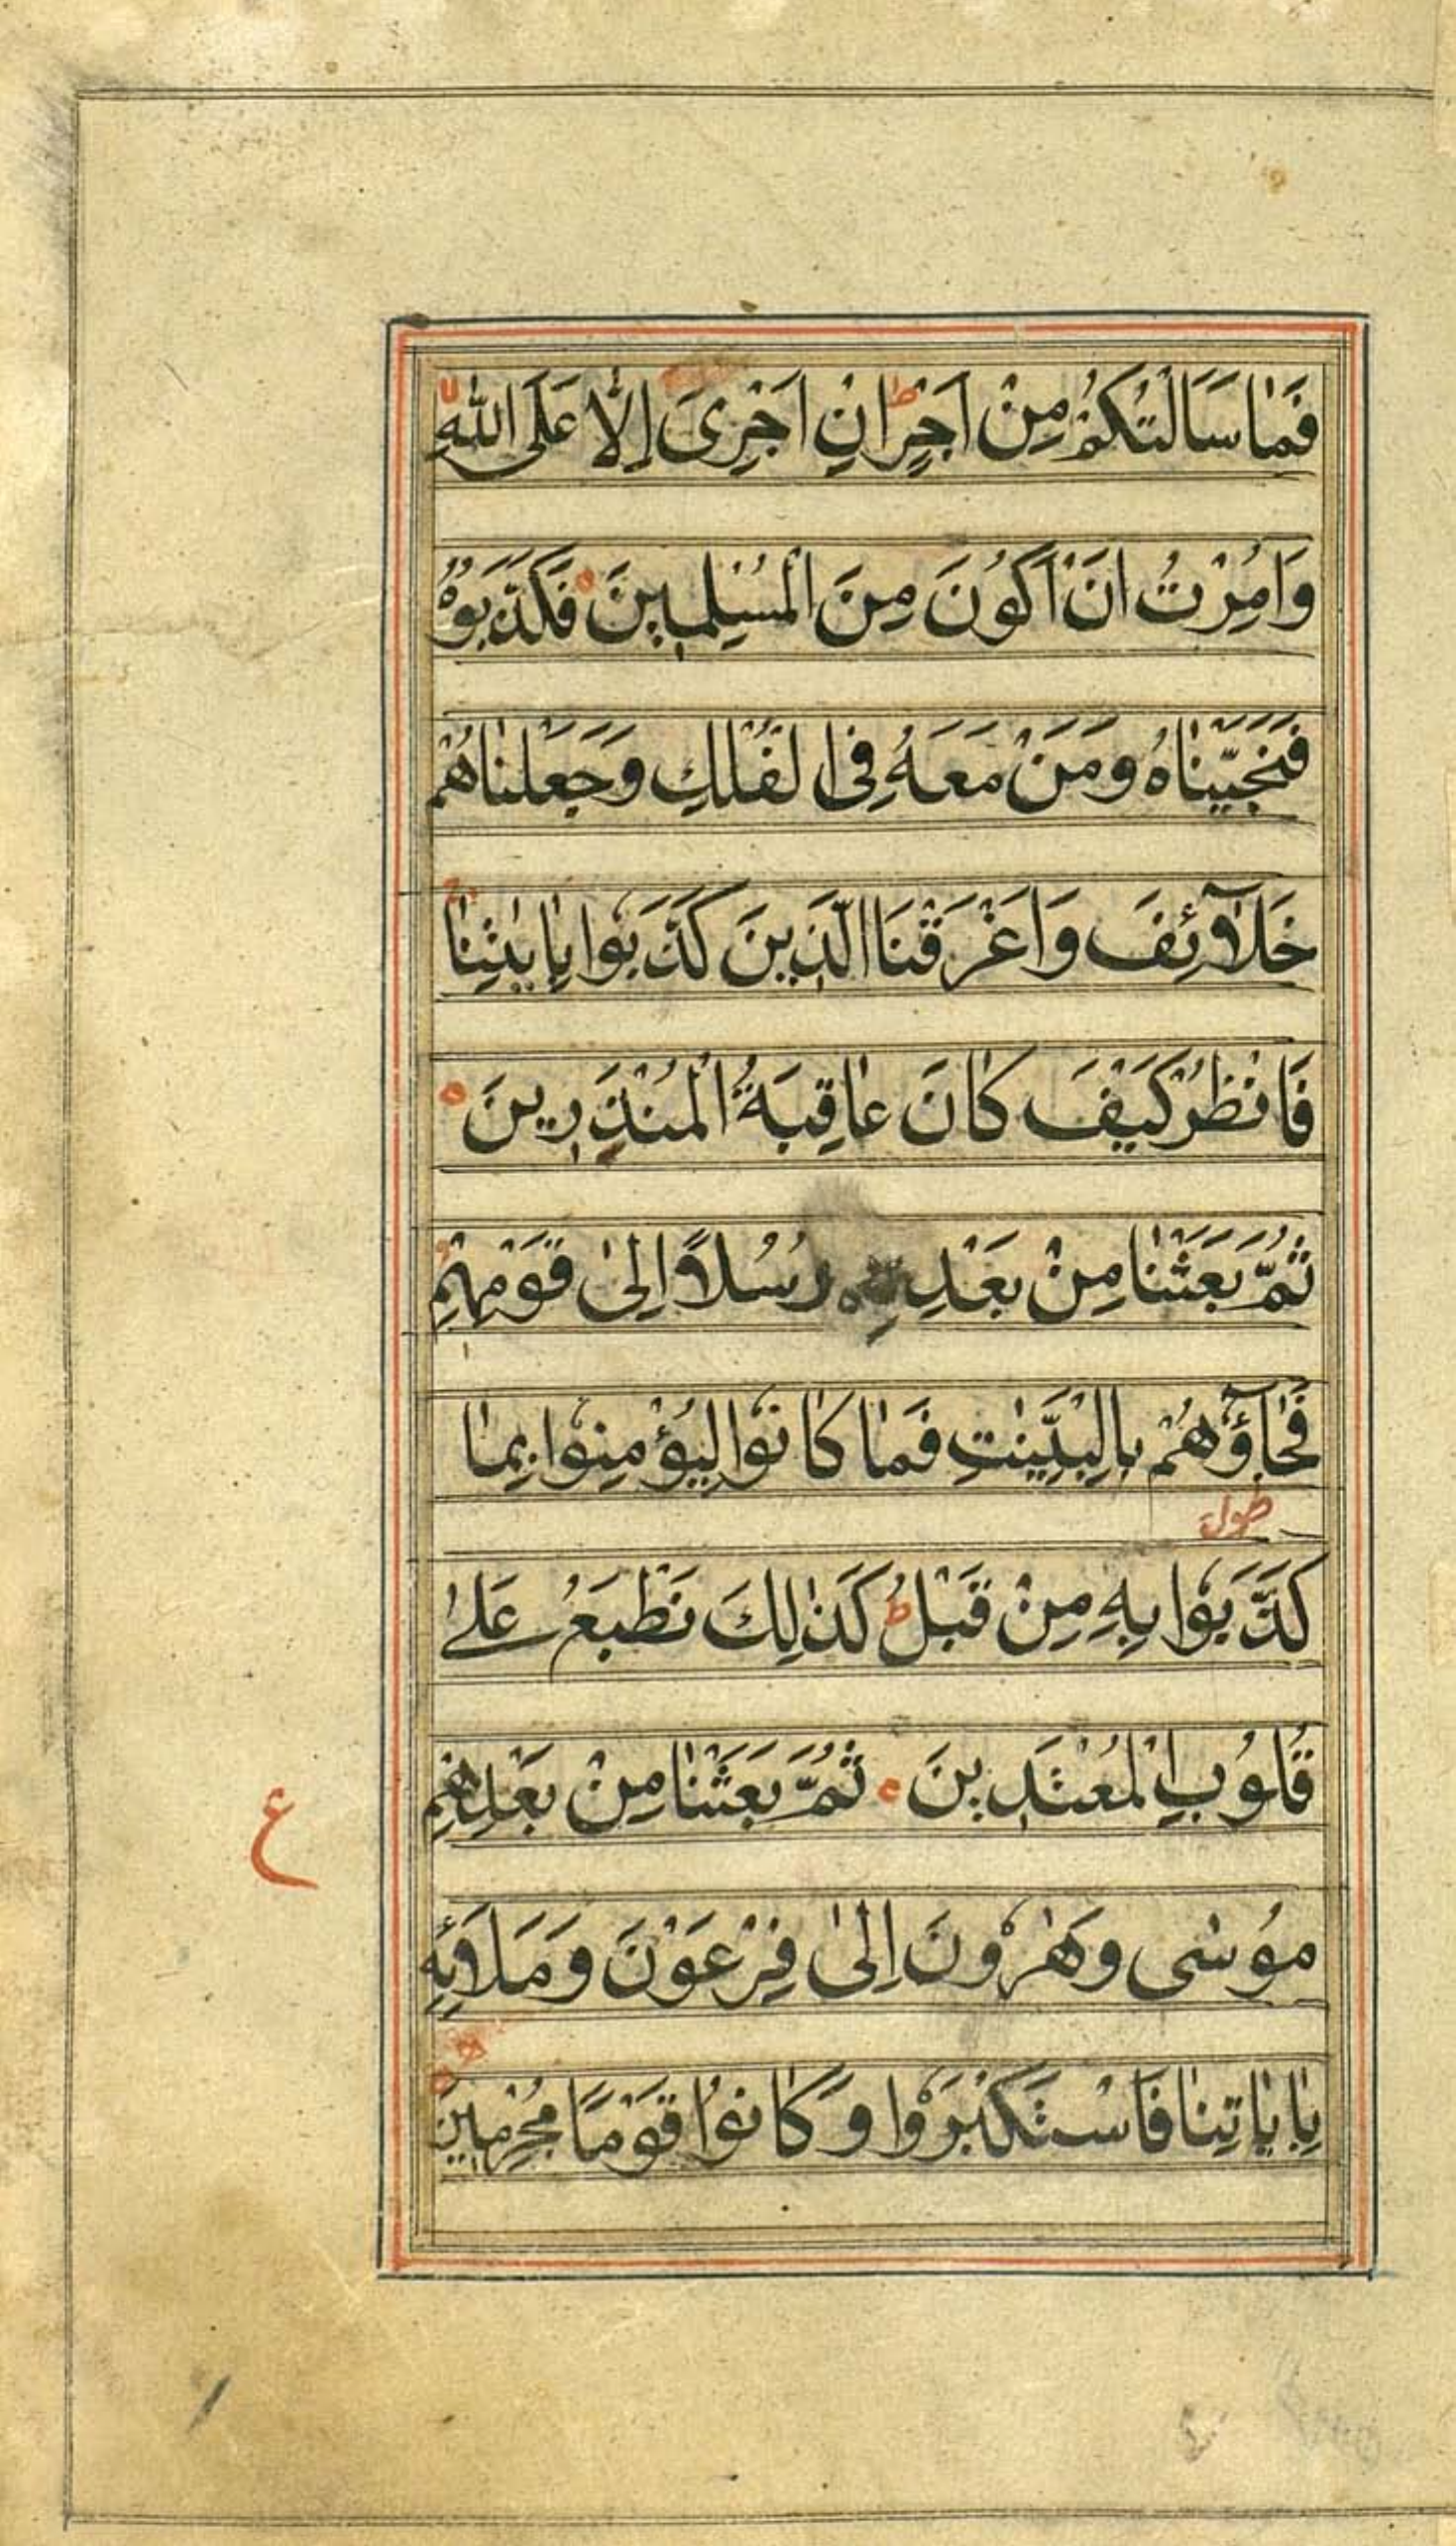 فَمَا سَاَلْتُكُمْ مِنْ اَجْرٍ ط اِنْ اَجْرِىَ اِلَّا عَلَى اللّٰهِ لا
وَاُمِرْتُ اَنْ اَكُوْنَ مِنَ الْمُسْلِمِينَ ه فَكَذَّبُوْهُ
فَنَجَّيْنَاهُ وَمَنْ مَعَهُ فِى الْفُلْكِ وَجَعَلْنَاهُمْ
خَلَآئِفَ وَاَغْرَقْنَا الَّذِينَ كَذَّبُوا بِاٰيٰتِنَا ج
فَانْظُرْ كَيْفَ كَانَ عَاقِبَةُ الْمُنْذَرِينَ ه
ثُمَّ بَعَثْنَا مِنْ بَعْدِهِ رُسُلًا اِلىٰ قَوْمِهِمْ
فَجَآؤُهُمْ بِالْبَيِّنٰتِ فَمَا كَانُوا لِيُؤْمِنُوا بِمَا
كَذَّبُوا بِهِ مِنْ قَبْلُ ط كَذٰلِكَ نَطْبَعُ عَلىٰ
قُلُوبِ الْمُعْتَدِينَ ه ثُمَّ بَعَثْنَا مِنْ بَعْدِهِمْ
ع
مُوسٰى وَهٰرُونَ اِلىٰ فِرْعَوْنَ وَمَلَائِهِ
بِاٰيَاتِنَا فَاسْتَكْبَرُوا وَكَانُوا قَوْمًا مُجْرِمِينَ ه